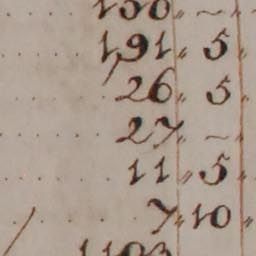 150 " ~ "
191 " 5 "
26 " 5 "
27 " ~ "
11 " 5 "
7 " 10 "
1103